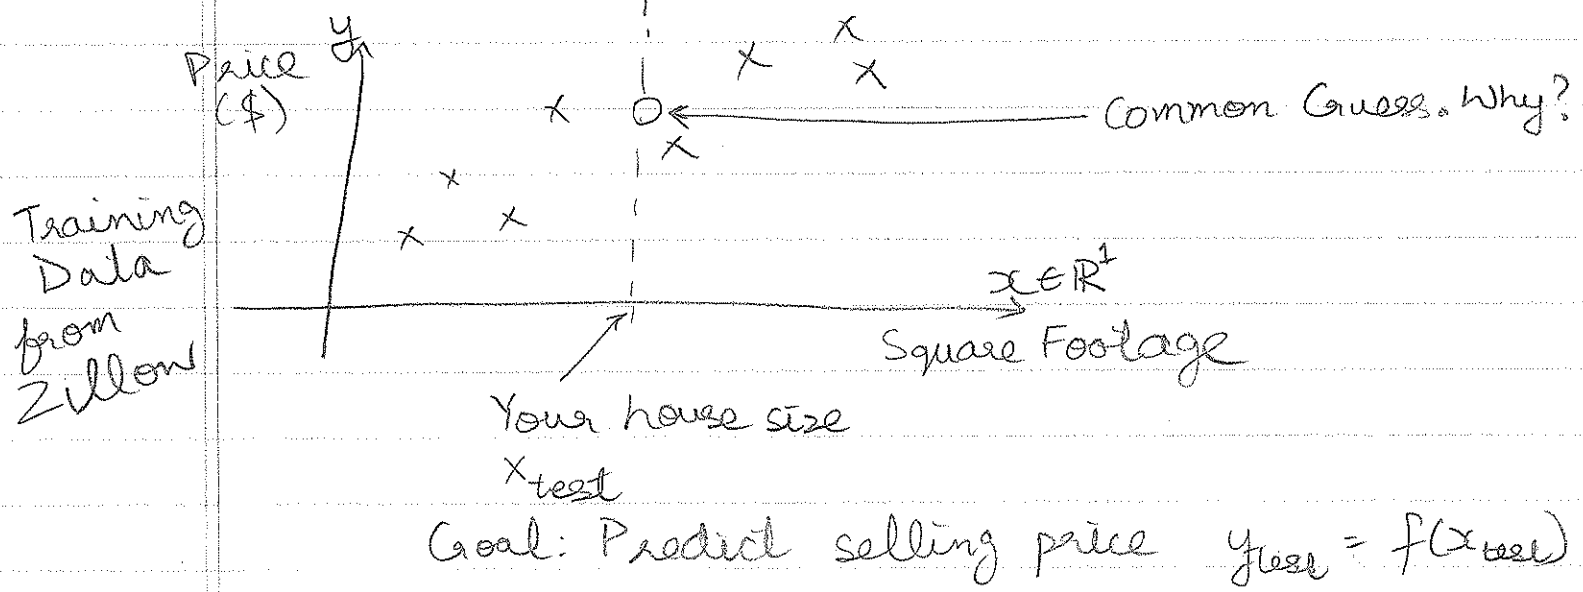 y
Price
($)
Common Guess. Why?
Training
Data
from
Zillow
x ∈ ℝ¹
Square Footage
Your house size
x_test
Goal: Predict selling price y_test = f(x_test)